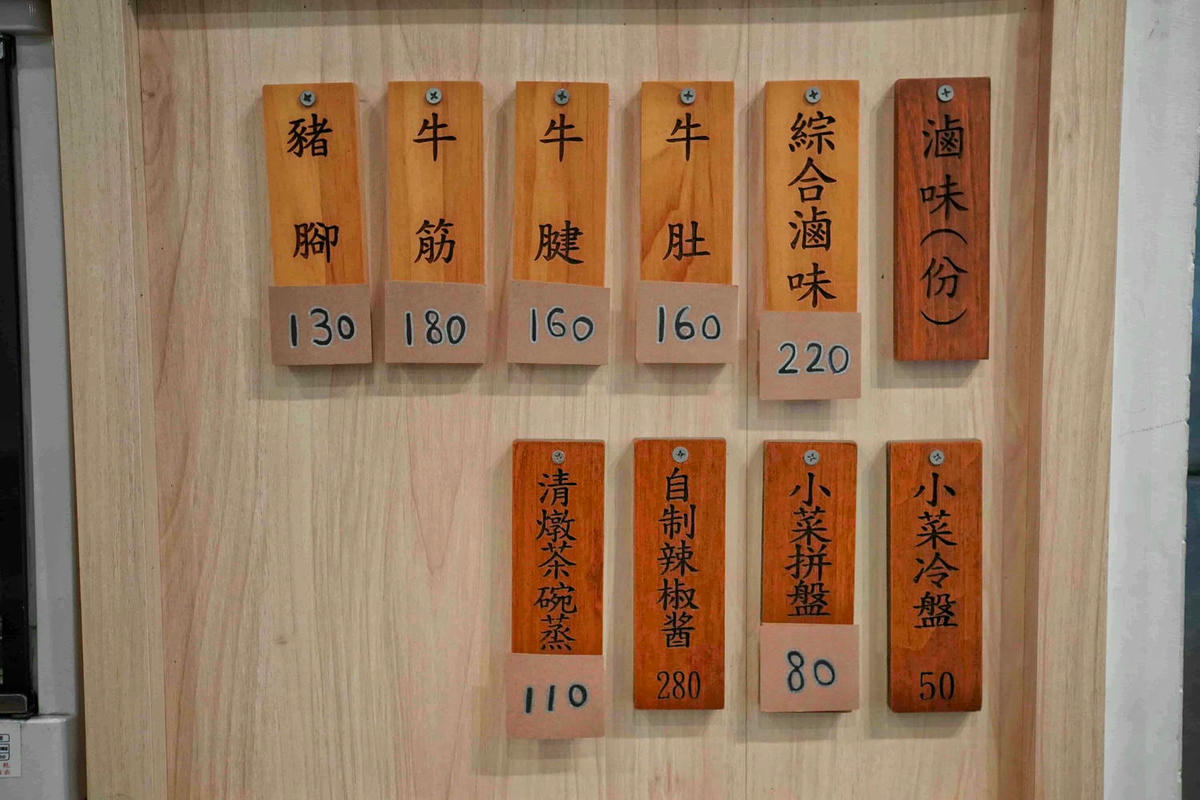 滷味(份)
綜合滷味
220
牛肚
160
牛腱
160
牛筋
180
豬腳
130
小菜冷盤
50
小菜拼盤
80
自制辣椒酱
280
清燉茶碗蒸
110